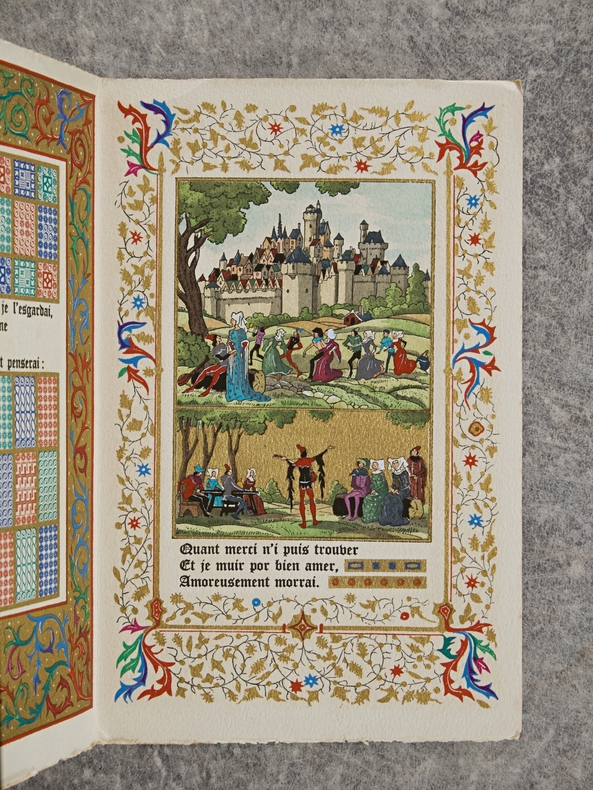 je l'esgardai,
ne
t penserai :
Quant merci n'i puis trouver
Et je muir por bien amer,
Amoreusement morrai.